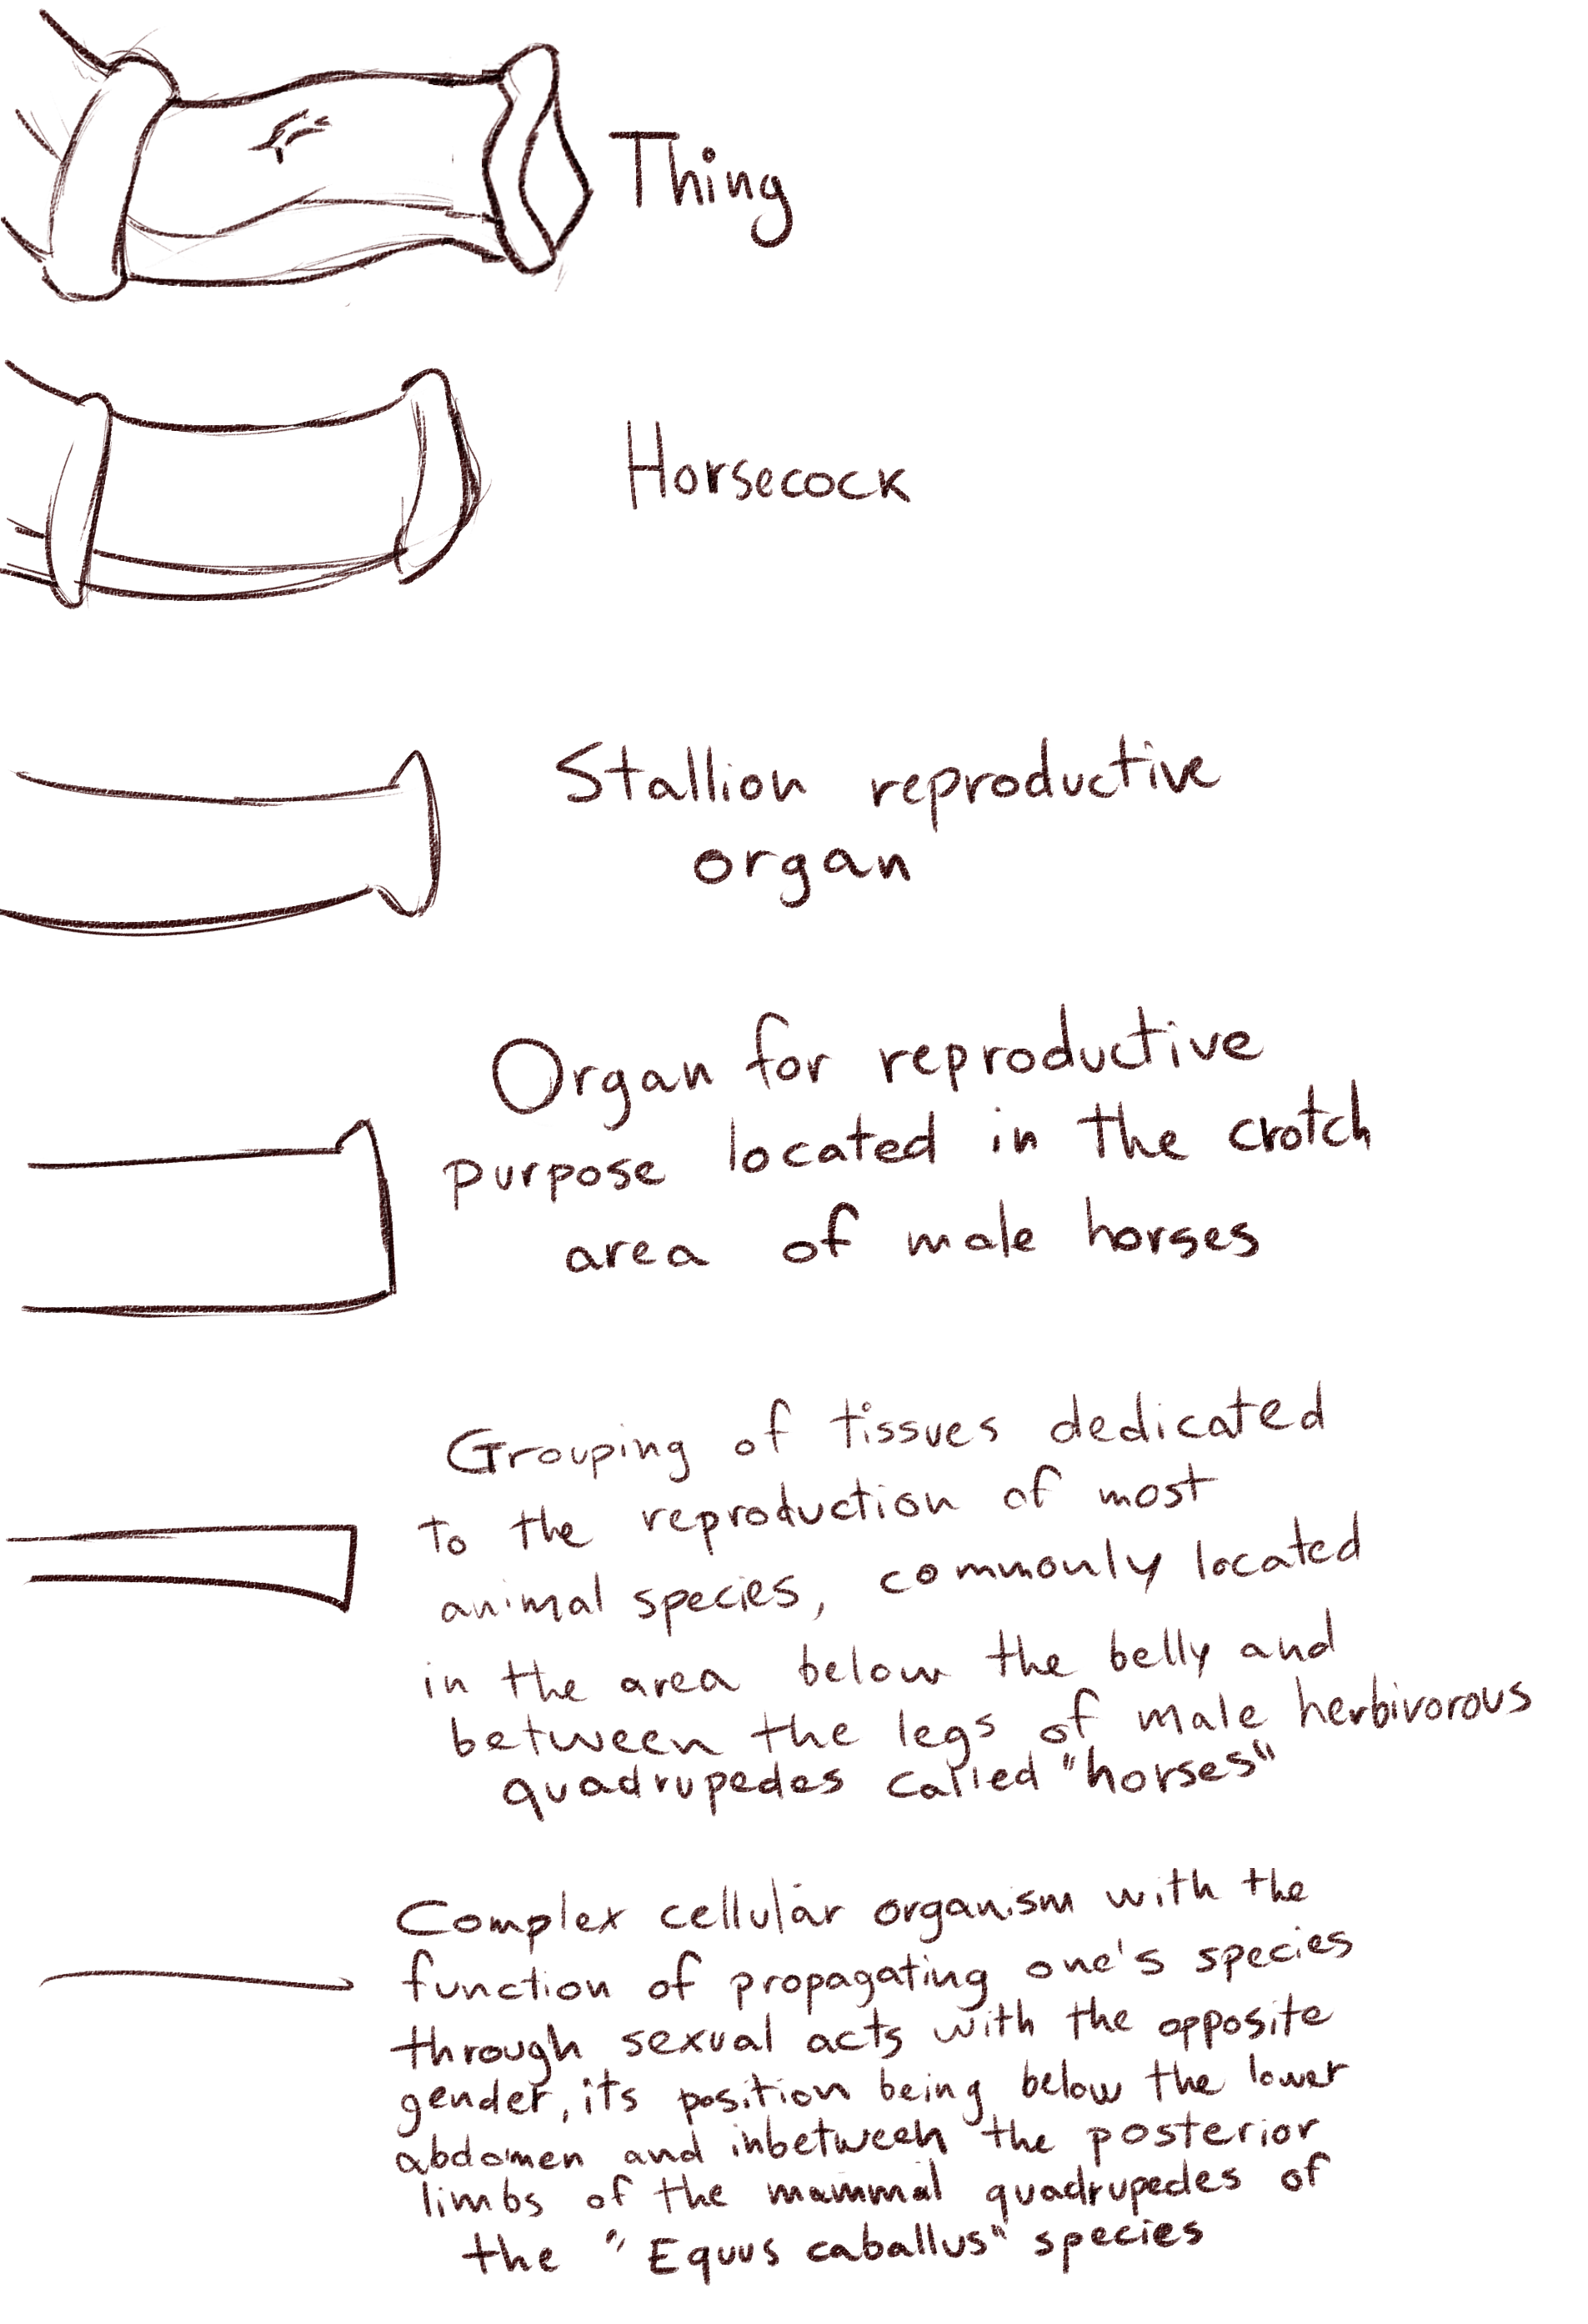 Thing
Horsecock
Stallion reproductive
organ
Organ for reproductive
purpose located in the crotch
area of male horses
Grouping of tissues dedicated
to the reproduction of most
animal species, commonly located
in the area below the belly and
between the legs of male herbivorous
quadrupedes called "horses"
Complex cellular organism with the
function of propagating one's species
through sexual acts with the opposite
gender, its position being below the lower
abdomen and inbetween the posterior
limbs of the mammal quadrupedes of
the "Equus caballus" species